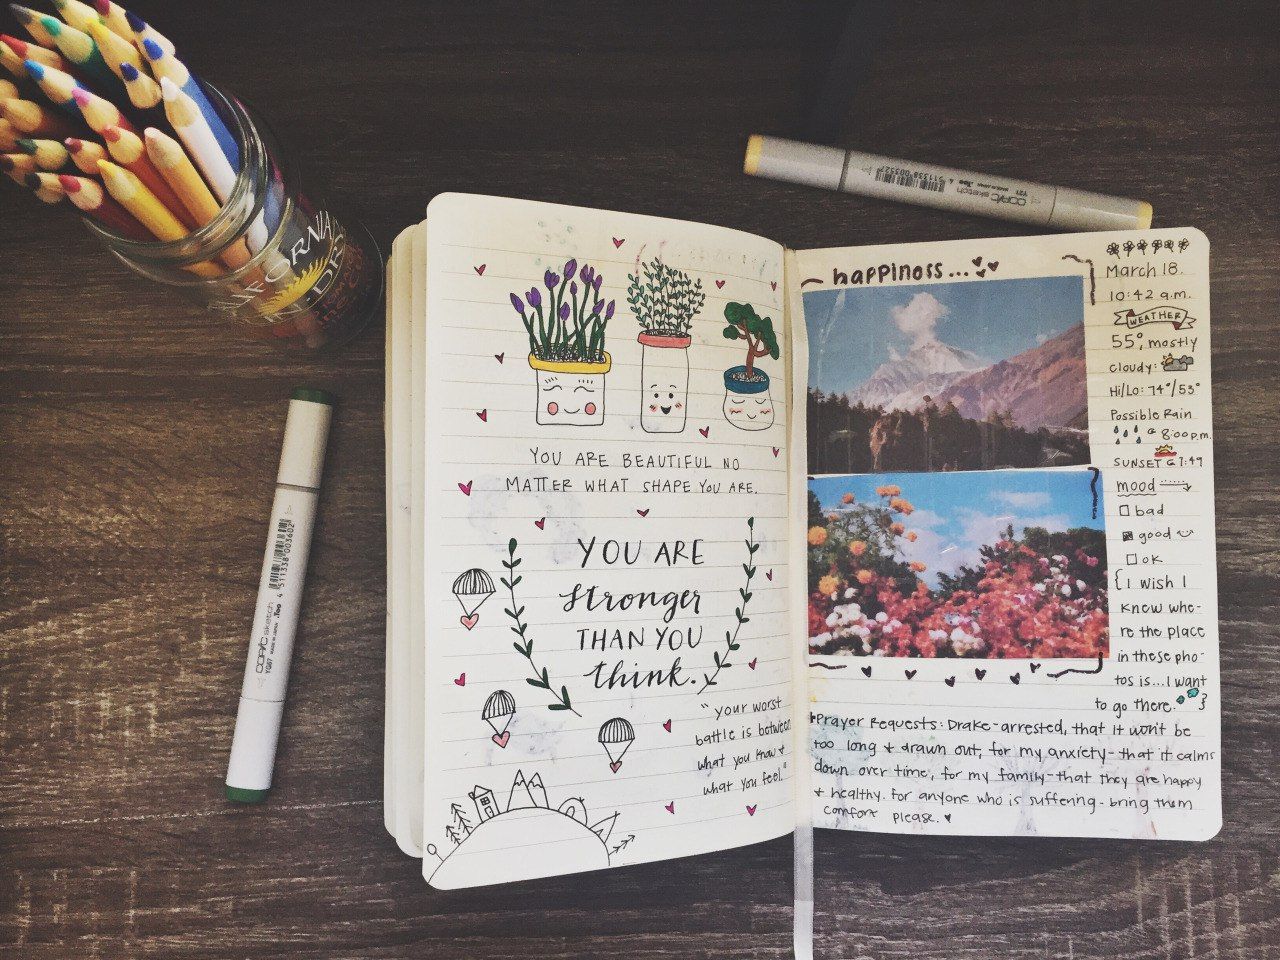 YOU ARE BEAUTIFUL NO
MATTER WHAT SHAPE YOU ARE.
YOU ARE
stronger
THAN YOU
think.
"your worst
battle is between
what you know &
what you feel."
happiness...
March 18.
10:42 a.m.
WEATHER
55°, mostly
cloudy:
Hi/Lo: 74°/53°
Possible Rain
@ 8:00 p.m.
SUNSET @ 7:49
mood
bad
good
OK
{I wish I
knew whe-
re the place
in these pho-
tos is...I want
to go there. }
Prayer Requests: Drake-arrested, that it won't be
too long & drawn out, for my anxiety-that it calms
down over time, for my family-that they are happy
& healthy. for anyone who is suffering-bring them
comfort please.
COPIC sketch .Too
MADE IN JAPAN
YG67
4 511338 003602
COPIC sketch .Too
MADE IN JAPAN
Y21
4 511338 003527